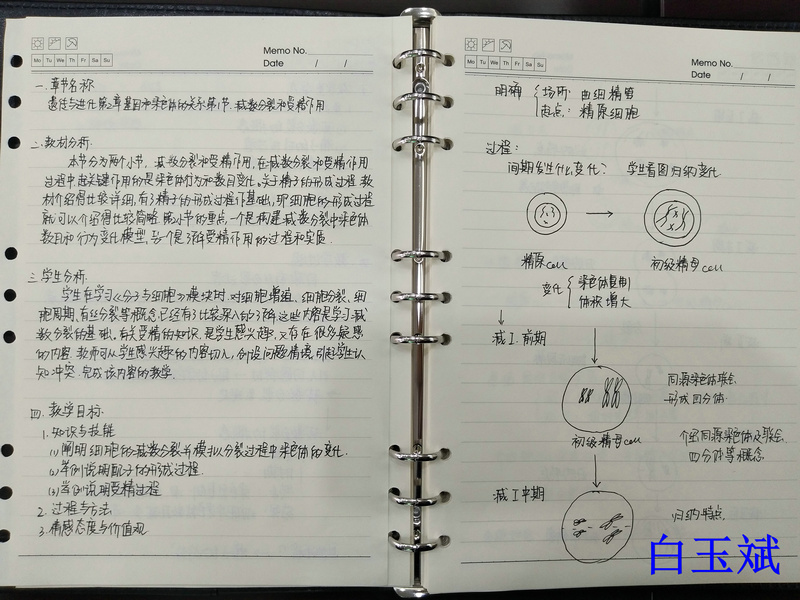 Memo No.
Mo Tu We Th Fr Sa Su
Date / /
一.章节名称
遗传与进化 第2章基因和染色体的关系 第1节.减数分裂和受精作用
二.教材分析.
本节分为两个小节,减数分裂和受精作用,在减数分裂和受精作用
过程中起关键作用的是染色体行为和数目变化,关于精子的形成过程,教
材介绍得比较详细,有了精子的形成过程作基础,卵细胞的形成过程
就可以介绍得比较简略.第小节的重点,一个是构建减数分裂中染色体
数目和行为变化模型,另一个是了解受精作用的过程和实质.
三.学生分析.
学生在学习《分子与细胞》模块时.对细胞增殖、细胞分裂、细
胞周期、有丝分裂等概念已经有了比较深入的了解,这些内容是学习减
数分裂的基础.有关受精的知识,是学生感兴趣,又存在很多疑惑
的内容.教师可从学生感兴趣的内容切入,创设问题情境,引起学生认
知冲突.完成该内容的教学.
四.教学目标.
1.知识与技能
(1)阐明细胞的减数分裂并模拟分裂过程中染色体的变化.
(2)举例说明配子的形成过程
(3)举例说明受精过程
2.过程与方法
3.情感态度与价值观
Memo No.
Mo Tu We Th Fr Sa Su
Date / /
明确 场所:曲细精管
起点:精原细胞
过程:
间期发生什么变化? 学生看图归纳变化.
精原cell 初级精母cell
变化 染色体复制
体积增大
减Ⅰ.前期
同源染色体联会
形成四分体.
初级精母cell
介绍同源染色体及联会.
四分体等概念.
减Ⅰ中期
归纳特点.
白玉斌